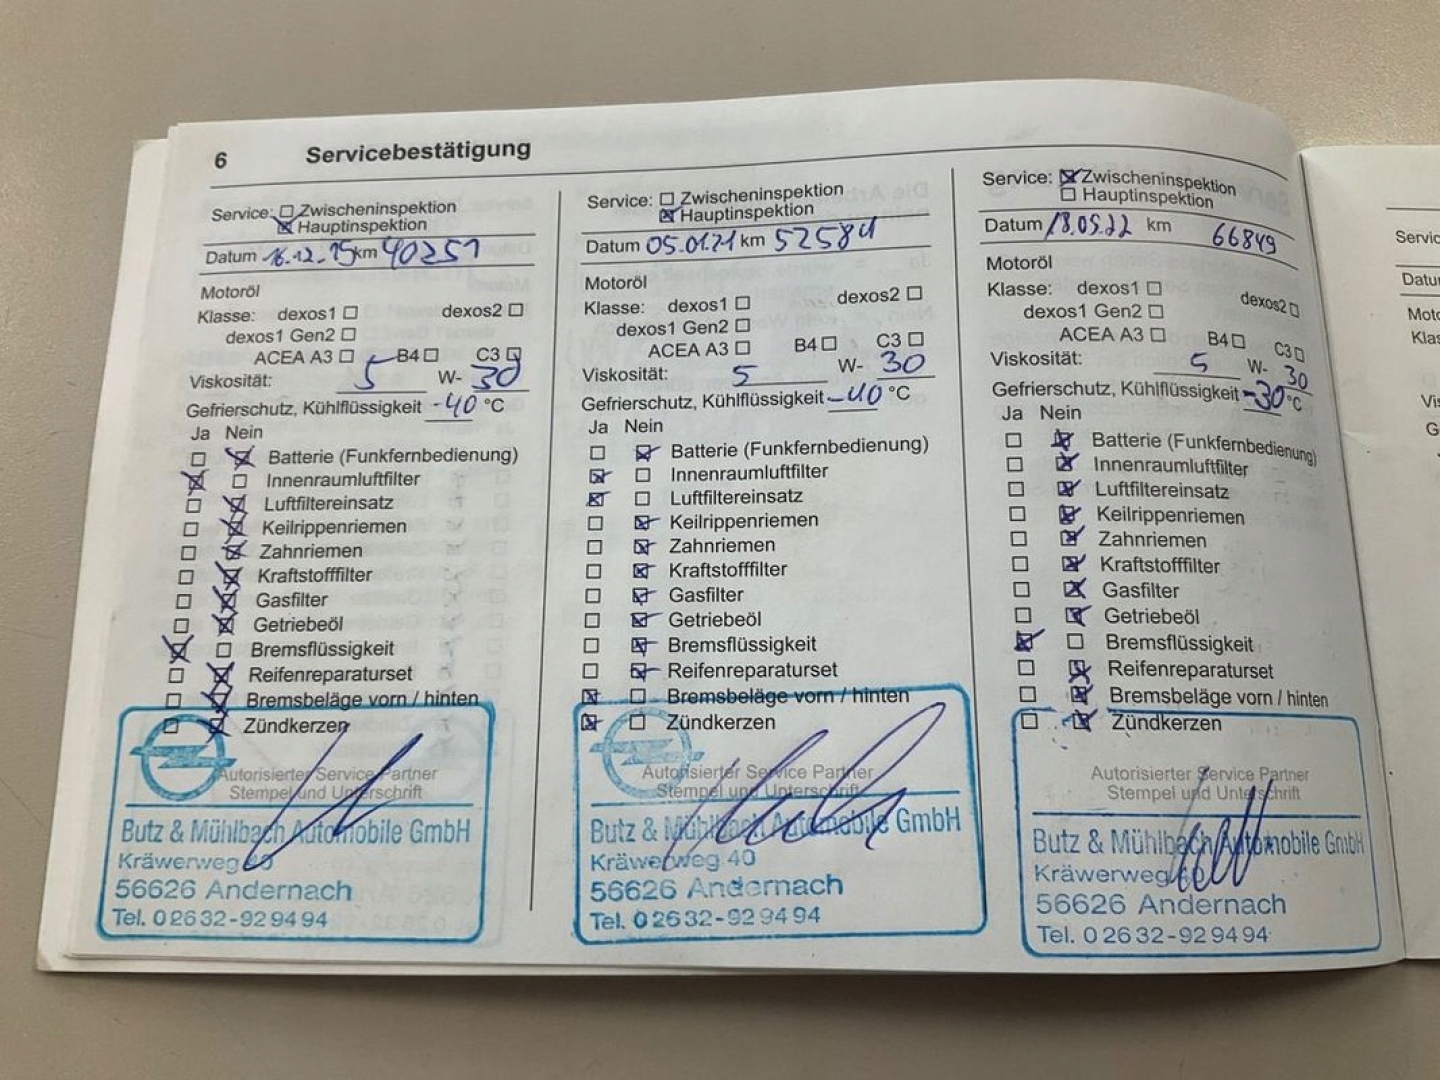 6 Servicebestätigung
Service: Zwischeninspektion
Hauptinspektion
Datum 16.12.19 km 40251
Motoröl
Klasse: dexos1 dexos2
dexos1 Gen2
ACEA A3 B4 C3
Viskosität: 5 W- 30
Gefrierschutz, Kühlflüssigkeit -40 °C
Ja Nein
Batterie (Funkfernbedienung)
Innenraumluftfilter
Luftfiltereinsatz
Keilrippenriemen
Zahnriemen
Kraftstofffilter
Gasfilter
Getriebeöl
Bremsflüssigkeit
Reifenreparaturset
Bremsbeläge vorn / hinten
Zündkerzen
Autorisierter Service Partner
Stempel und Unterschrift
Butz & Mühlbach Automobile GmbH
Kräwerweg 40
56626 Andernach
Tel. 0 26 32 - 92 94 94
Service: Zwischeninspektion
Hauptinspektion
Datum 05.01.21 km 52584
Motoröl
Klasse: dexos1 dexos2
dexos1 Gen2
ACEA A3 B4 C3
Viskosität: 5 W- 30
Gefrierschutz, Kühlflüssigkeit -40 °C
Ja Nein
Batterie (Funkfernbedienung)
Innenraumluftfilter
Luftfiltereinsatz
Keilrippenriemen
Zahnriemen
Kraftstofffilter
Gasfilter
Getriebeöl
Bremsflüssigkeit
Reifenreparaturset
Bremsbeläge vorn / hinten
Zündkerzen
Autorisierter Service Partner
Stempel und Unterschrift
Butz & Mühlbach Automobile GmbH
Kräwerweg 40
56626 Andernach
Tel. 0 26 32 - 92 94 94
Service: Zwischeninspektion
Hauptinspektion
Datum 18.05.22 km 66849
Motoröl
Klasse: dexos1 dexos2
dexos1 Gen2
ACEA A3 B4 C3
Viskosität: 5 W- 30
Gefrierschutz, Kühlflüssigkeit -30 °C
Ja Nein
Batterie (Funkfernbedienung)
Innenraumluftfilter
Luftfiltereinsatz
Keilrippenriemen
Zahnriemen
Kraftstofffilter
Gasfilter
Getriebeöl
Bremsflüssigkeit
Reifenreparaturset
Bremsbeläge vorn / hinten
Zündkerzen
Autorisierter Service Partner
Stempel und Unterschrift
Butz & Mühlbach Automobile GmbH
Kräwerweg 40
56626 Andernach
Tel. 0 26 32 - 92 94 94
Servic
Datu
Moto
Klas
Vis
G